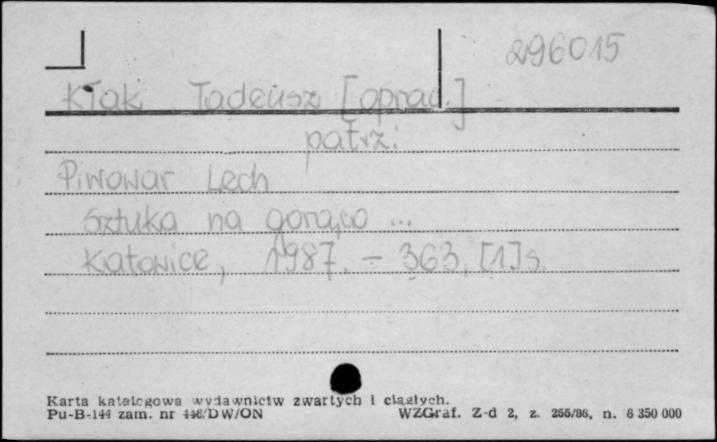 296015
Kłak Tadeusz [oprac.]
patrz:
Piwowar Lech
Sztuka na gorąco ...
Katowice, 1987. – 363, [1] s.
Karta katalogowa wydawnictw zwartych i ciągłych.
Pu-B-144 zam. nr 446/DW/ON WZGraf. Z-d 2, z. 266/86, n. 6 350 000